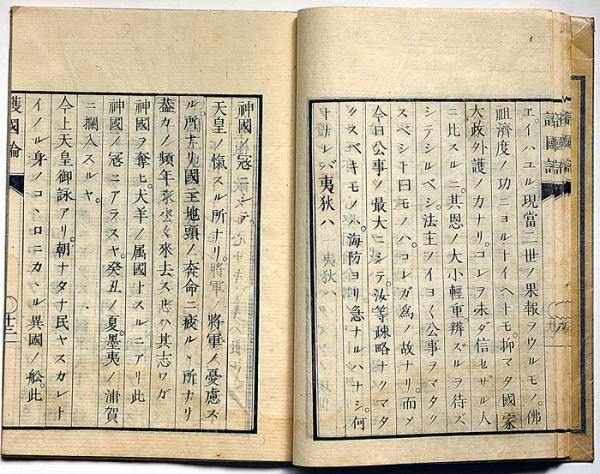 ヱ。イハユル現當二世ノ果報ヲウルモノ。佛
祖濟度ノ功ニヨルトイヘトモ抑マタ國家
大政外護ノカナリ。コレヲ未ダ信セザル人
ニ比スルニ。其恩ノ大小輕重辨ズルヲ待ズ
シテシルベシ。法主ノイヨ〱公事ヲマタク
スベシト曰モノハ。コレガ為ノ故ナリ。而メ
今日公事ノ最大ニシテ。汝等疎略ナクマタ
クスベキモノハ。海防ヨリ急ナルハナシ。何
トナレバ夷狄ハ
神國ノ冦ニシテ。
天皇ノ愾スル所ナリ。將軍ノ憂慮ス
ル所ナリ國主地頭ノ奔命ニ疲ルヽ所ナリ
蓋カノ頻年來去ス其志ワガ
神國ヲ奪ヒ。犬羊ノ属國トスルニアリ此
神國ノ冦ニアラスヤ。癸丑ノ夏墨夷ノ浦賀
ニ闌入スルヤ。
今上天皇御詠アリ。朝ナタナ民ヤスカレト
イノル身ノコヽロニカヽル異國ノ舩。此
護國論